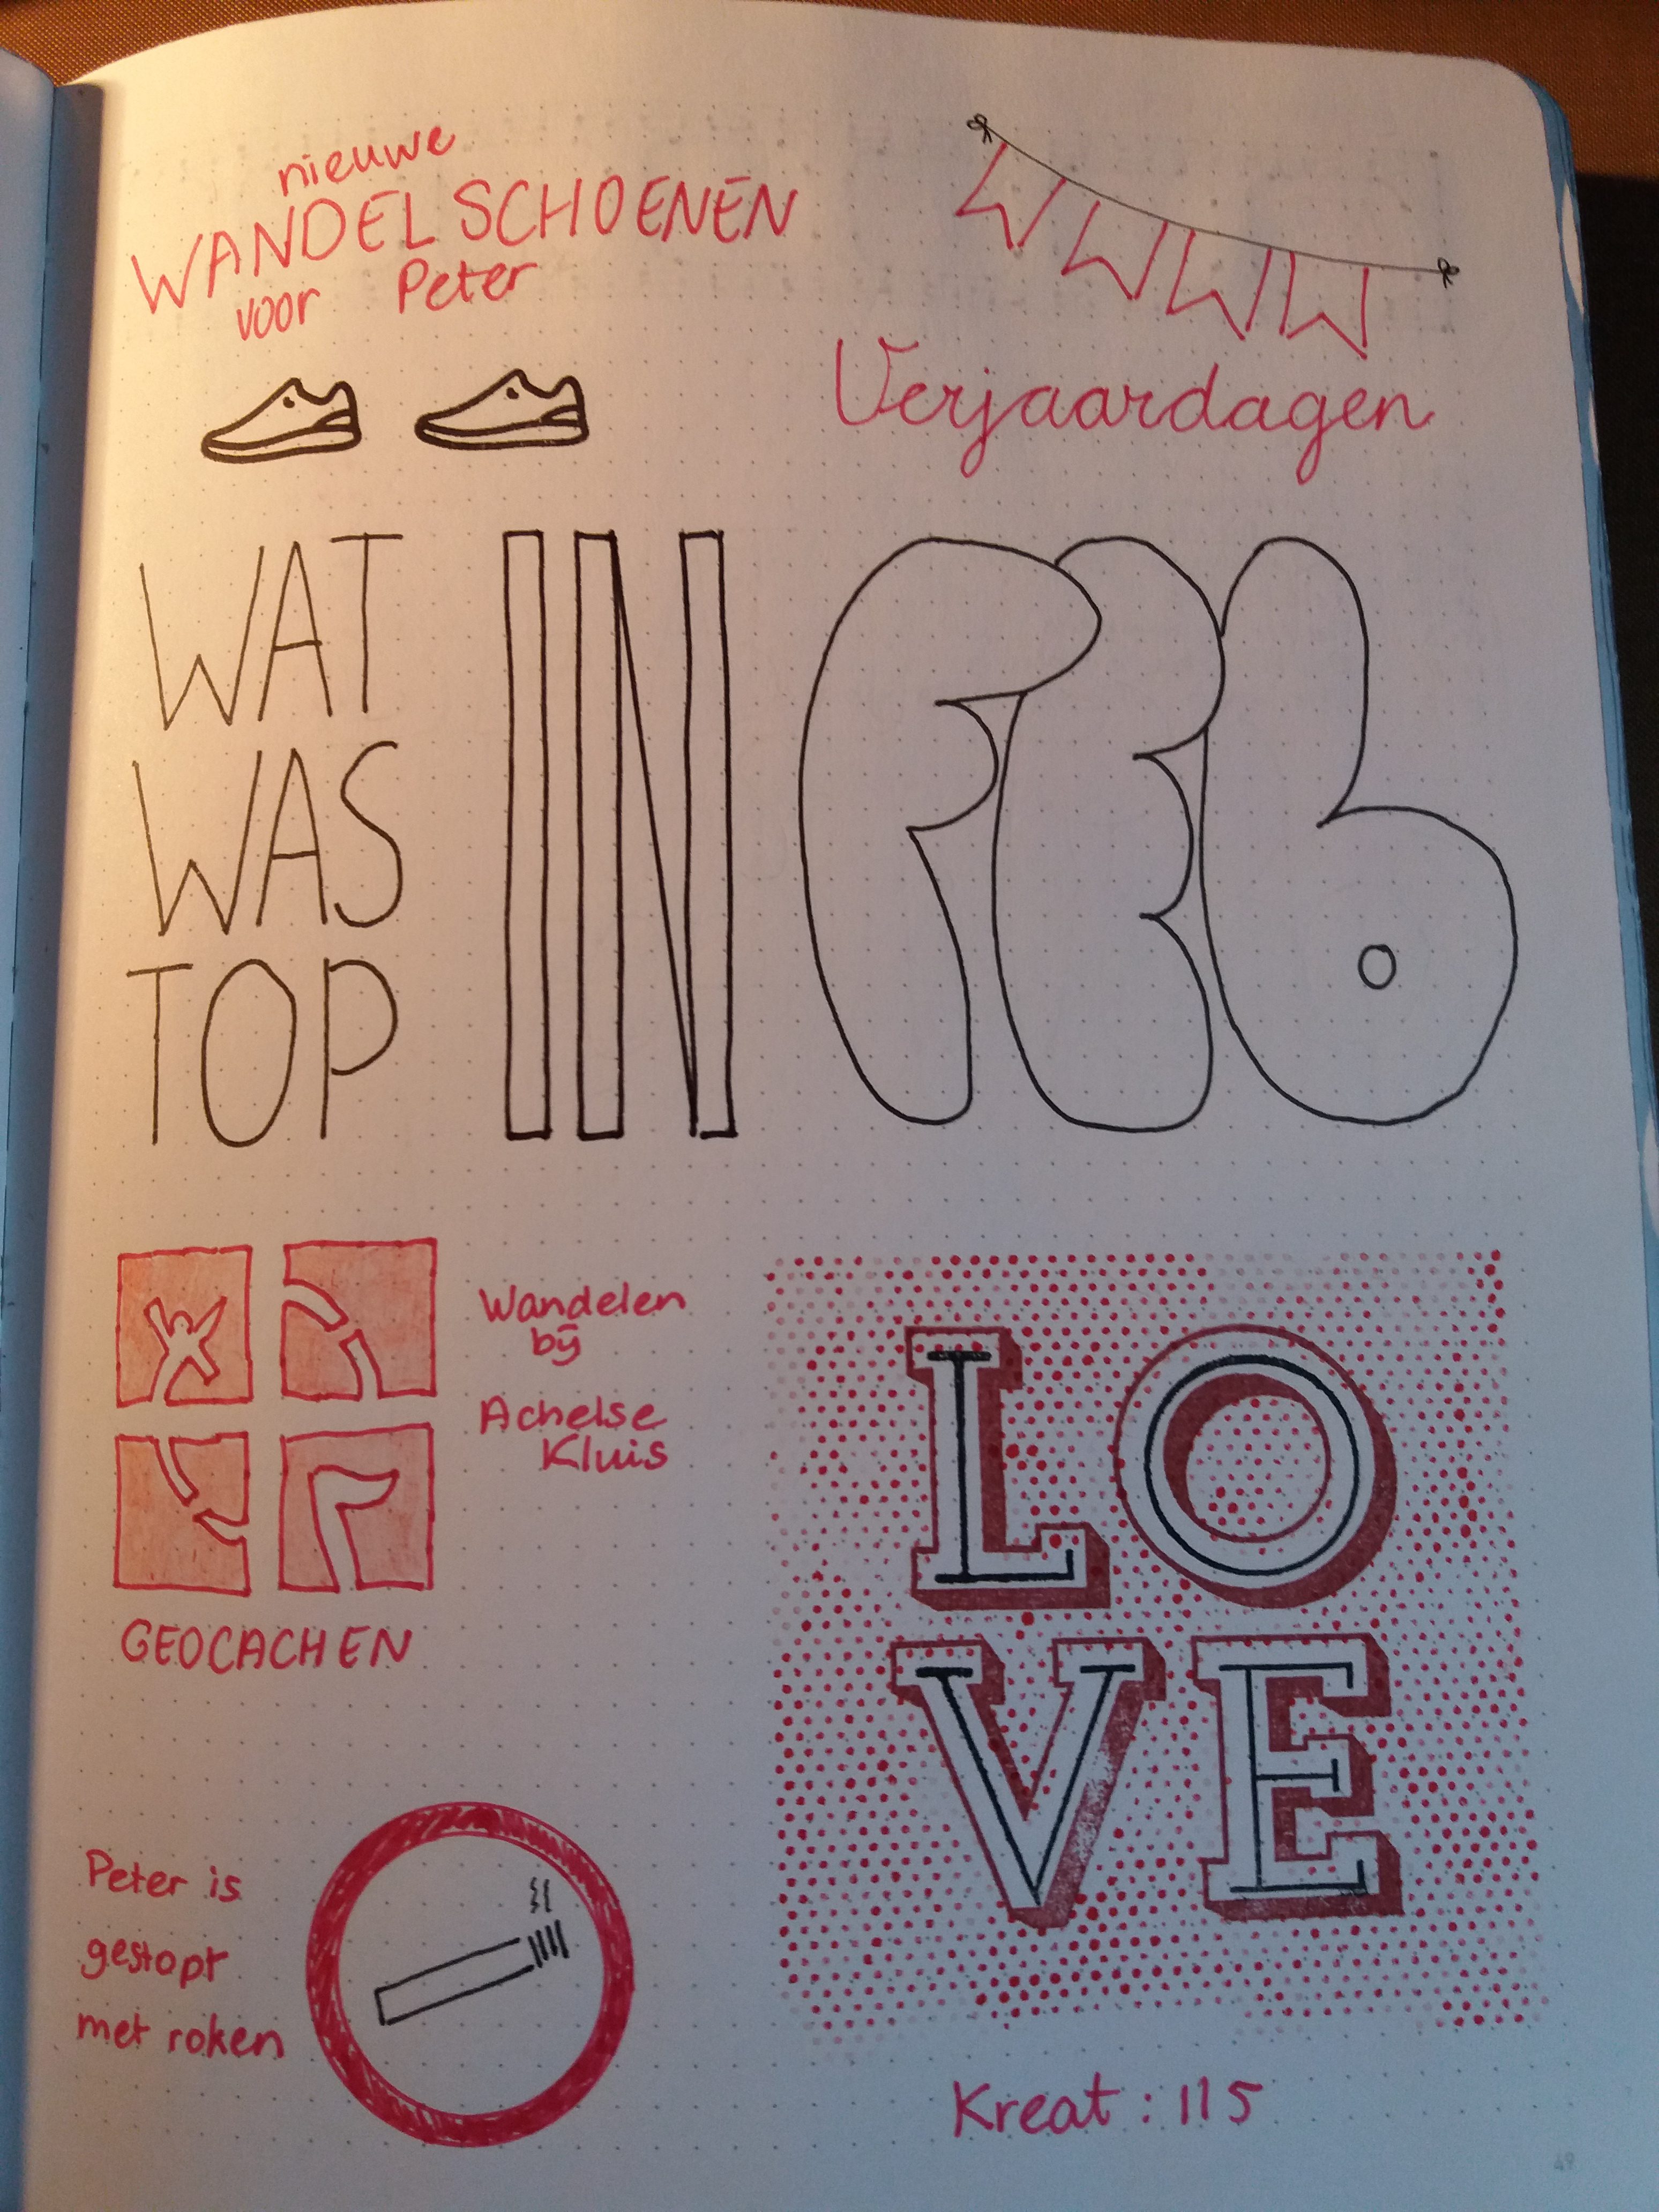 nieuwe
WANDELSCHOENEN
voor Peter
Verjaardagen
WAT
WAS
TOP
IN
FEb
Wandelen
bij
Achelse
Kluis
GEOCACHEN
LO
VE
Peter is
gestopt
met roken
Kreat: 115
49